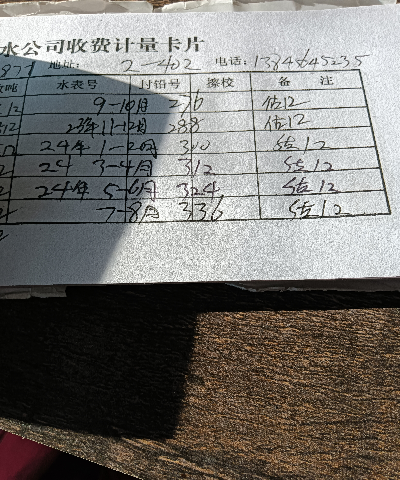 水公司收费计量卡片
地址: 2-402 电话:1384645235
吨 水表号 付铅号 擦校 备 注
12 9-10月 276 估12
12 23年11-12月 288 估12
24年1-2月 300 估12
2 24 3-4月 312 估12
2 24年5-6月 324 估12
2 7-8月 336 估12